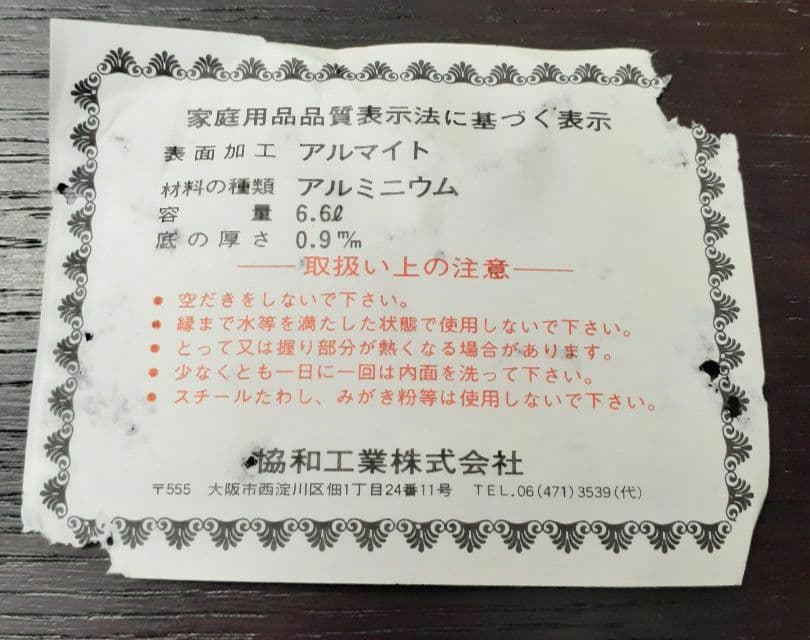 家庭用品品質表示法に基づく表示
表面加工 アルマイト
材料の種類 アルミニウム
容量 6.6ℓ
底の厚さ 0.9㎜
取扱い上の注意
• 空だきをしないで下さい。
• 縁まで水等を満たした状態で使用しないで下さい。
• とって又は握り部分が熱くなる場合があります。
• 少なくとも一日に一回は内面を洗って下さい。
• スチールたわし、みがき粉等は使用しないで下さい。
協和工業株式会社
〒555 大阪市西淀川区佃1丁目24番11号 TEL.06(471)3539(代)